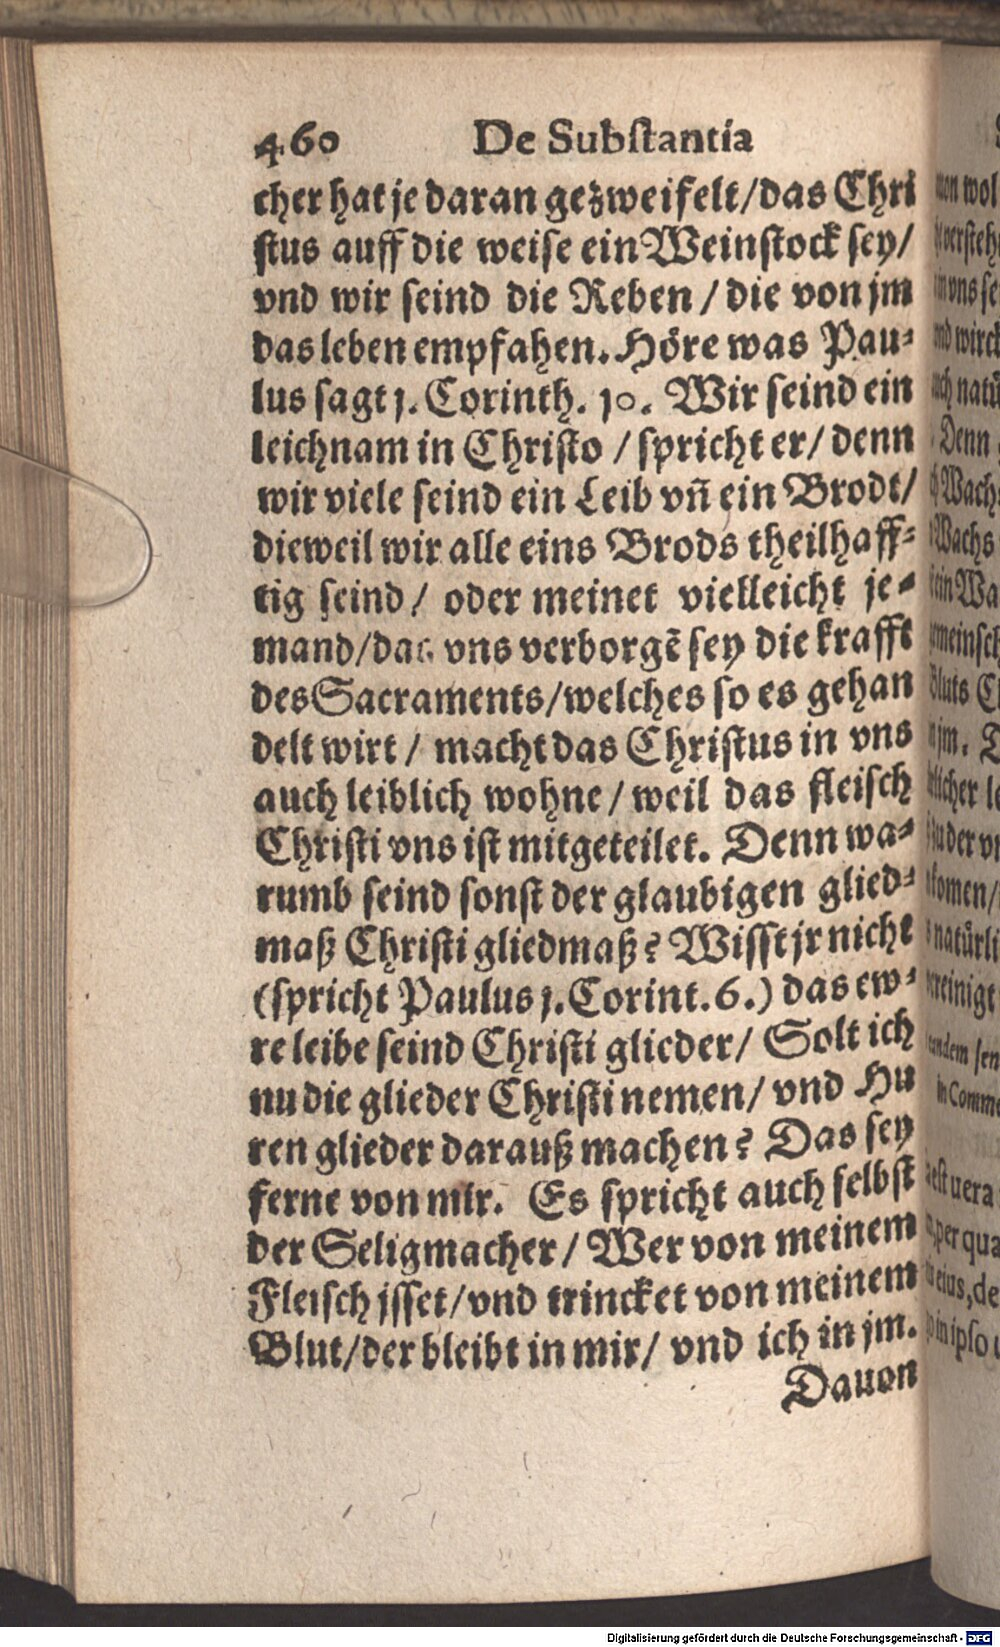 460 De Substantia
cher hat je daran gezweifelt/das Chri
stus auff die weise ein Weinstock sey/
vnd wir seind die Reben/die von jm
das leben empfahen. Höre was Pau⸗
lus sagt 1. Corinth. 10. Wir seind ein
leichnam in Christo/spricht er/denn
wir viele seind ein Leib vñ ein Brodt/
dieweil wir alle eins Brods theilhaff⸗
tig seind/ oder meinet vielleicht je⸗
mand/das vns verborgẽ sey die krafft
des Sacraments/welches so es gehan
delt wirt/ macht das Christus in vns
auch leiblich wohne/weil das fleisch
Christi vns ist mitgeteilet. Denn wa⸗
rumb seind sonst der glaubigen glied⸗
maß Christi gliedmaß? Wisst jr nicht
(spricht Paulus 1. Corint. 6.) das ew⸗
re leibe seind Christi glieder/ Solt ich
nu die glieder Christi nemen/ vnd Hu
ren glieder darauß machen? Das sey
ferne von mir. Es spricht auch selbst
der Seligmacher/ Wer von meinem
Fleisch jsset/vnd trincket von meinem
Blut/der bleibt in mir/ vnd ich in jm.
Dauon
Digitalisierung gefördert durch die Deutsche Forschungsgemeinschaft - DFG